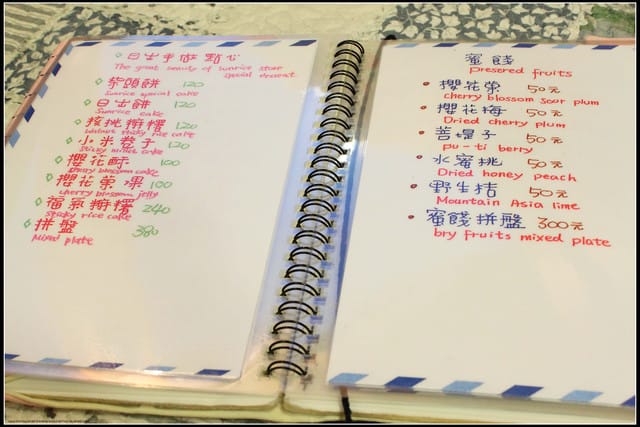 日出手做點心
The great beauty of sunrice store
special dessert
芋頭餅 120
Sunrice special cake
日出餅 120
Sunrice cake
核桃糬 120
walnut sticky rice cake
小米卷子 120
Sticky millet cake
櫻花酥 100
cherry blossom cake
櫻花菓凍 100
cherry blossom jelly
福氣糬 240
Sticky rice cake
拼盤 380
Mixed plate
蜜餞
Presered fruits
櫻花菓 50元
cherry blossom sour plum
櫻花梅 50元
Dried cherry plum
菩堤子 50元
pu-ti berry
水蜜桃 50元
Dried honey peach
野生桔 50元
Mountain Asia lime
蜜餞拼盤 300元
bry fruits mixed plate